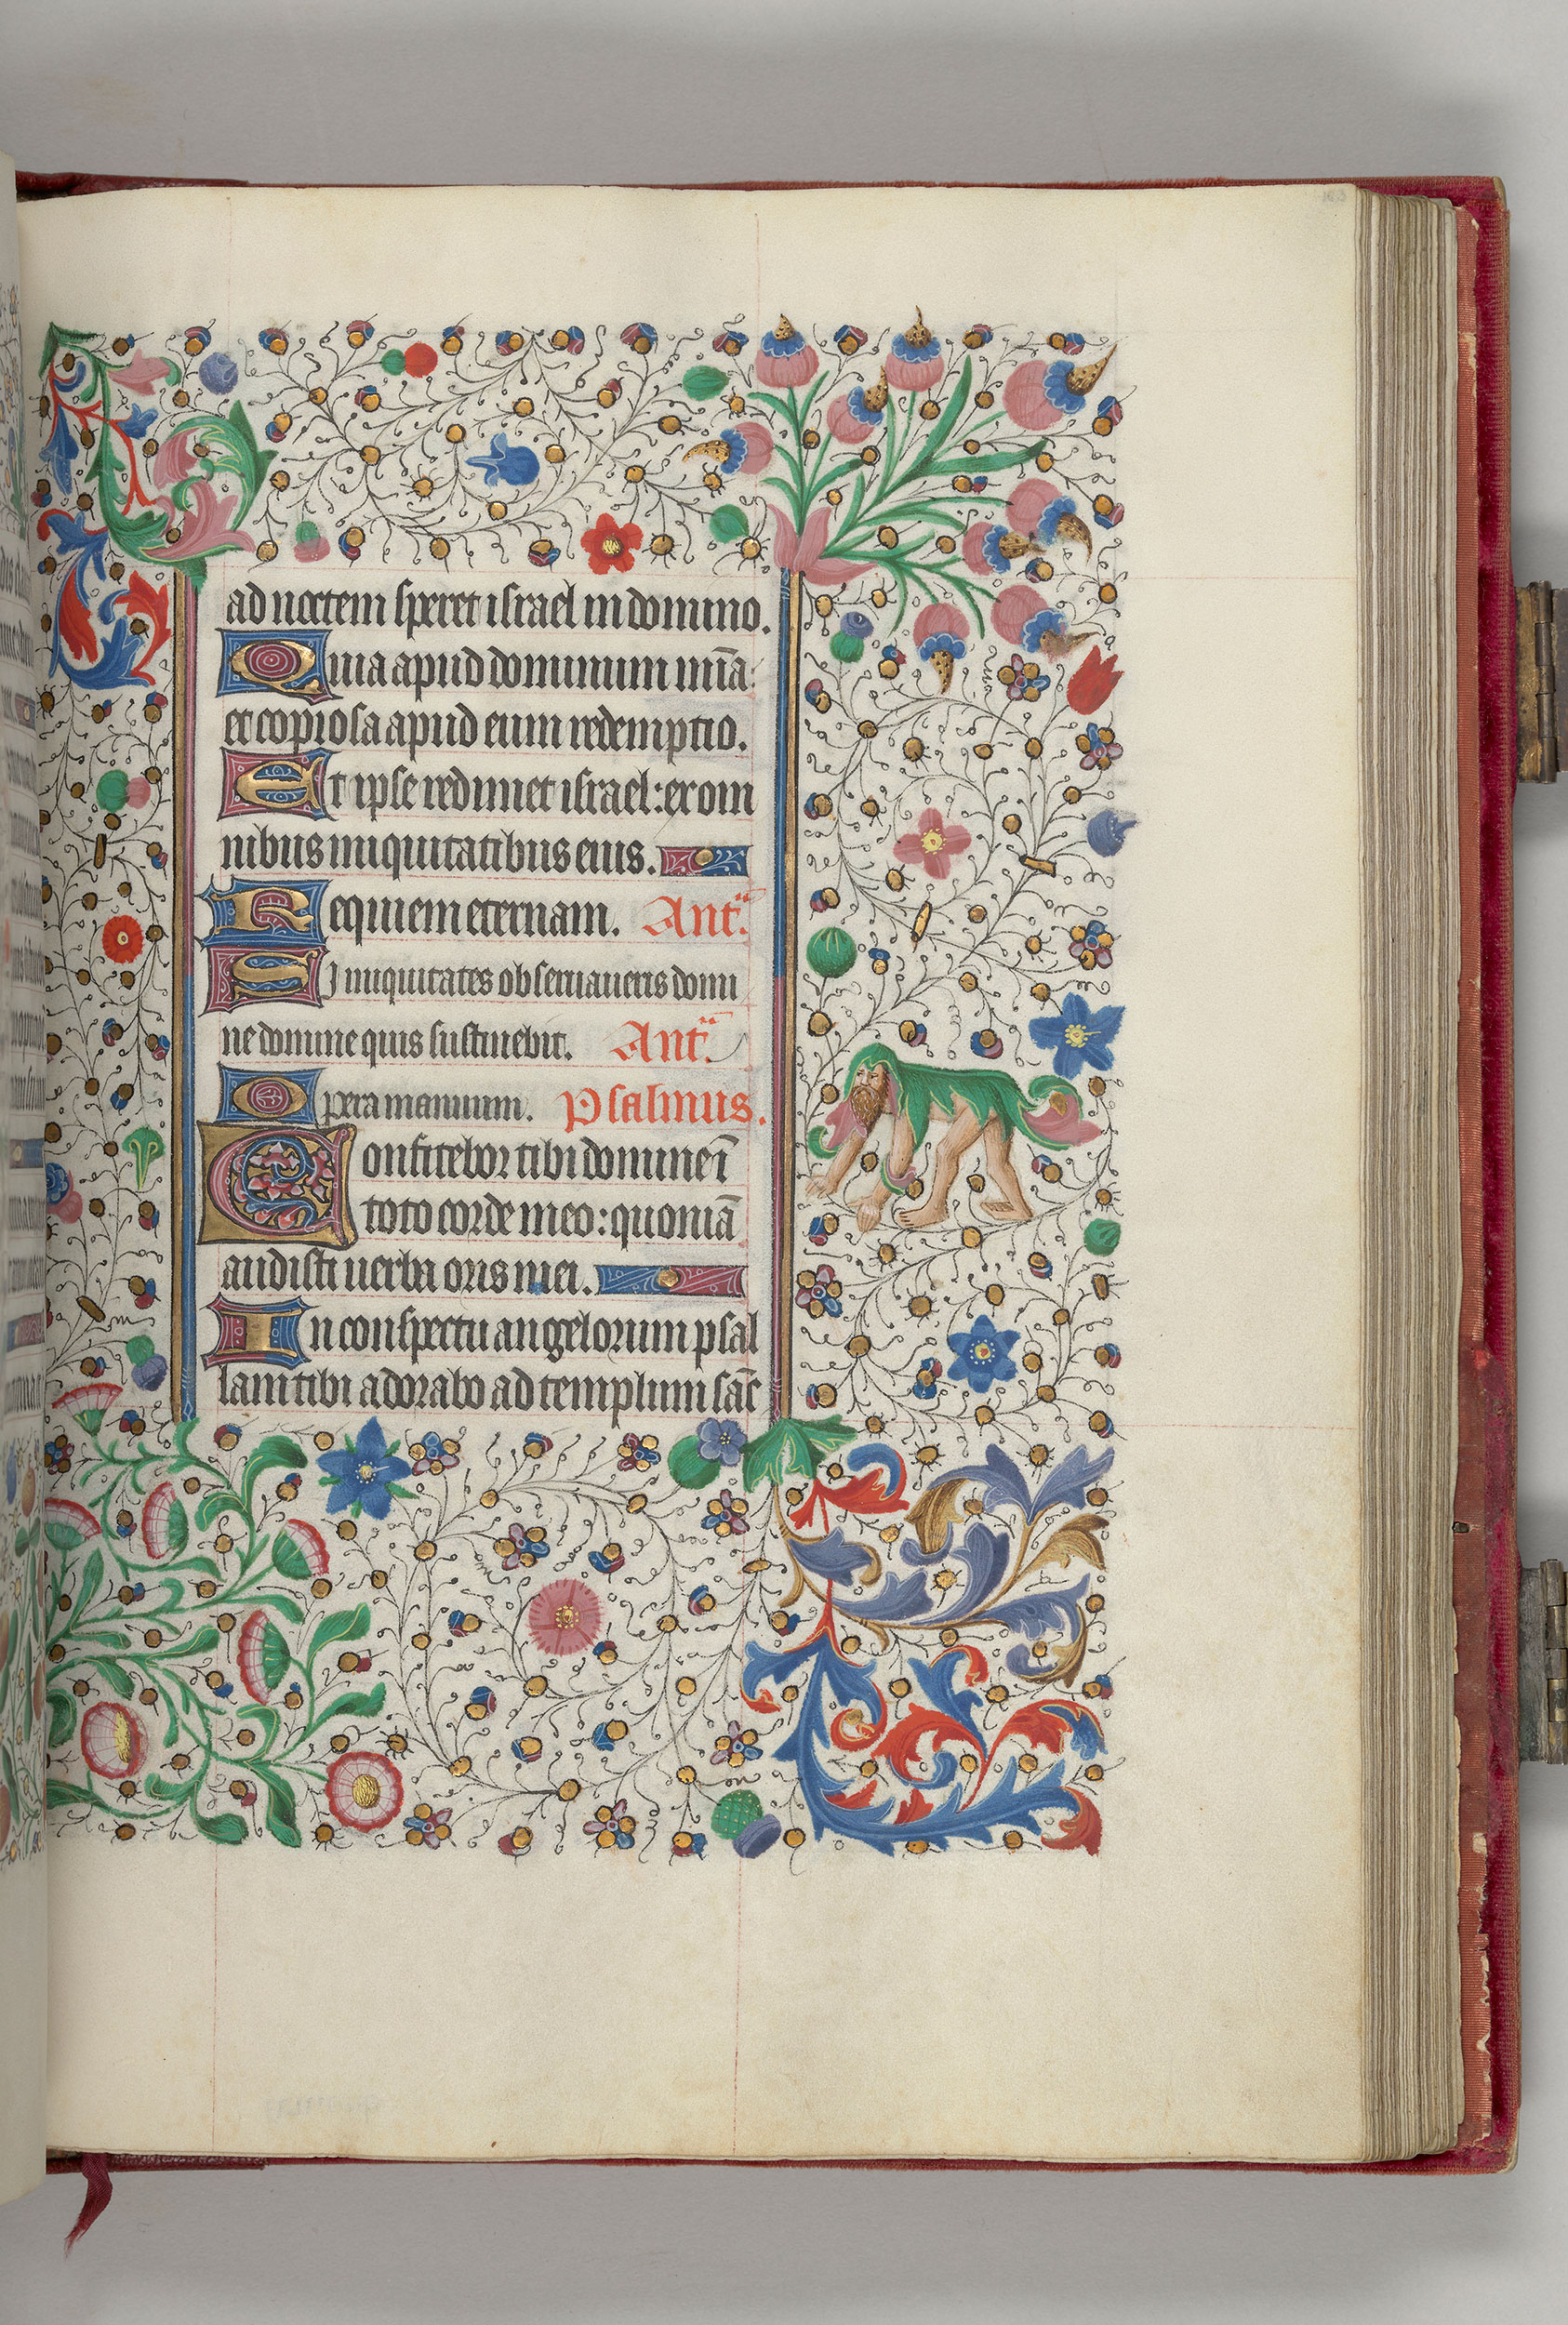 ad noctem speret israel in domino.
Quia apud dominum mīa:
et copiosa apud eum redemptio.
Et ipse redimet israel: ex om
nibus iniquitatibus eius.
Requiem eternam. Ant.
Si iniquitates observaveris domi
ne domine quis sustinebit. Ant.
Opera manuum. Psalmus.
Confitebor tibi domine ī
toto corde meo: quoniā
audisti verba oris mei.
In conspectu angelorum psal
lam tibi adorabo ad templum sāc